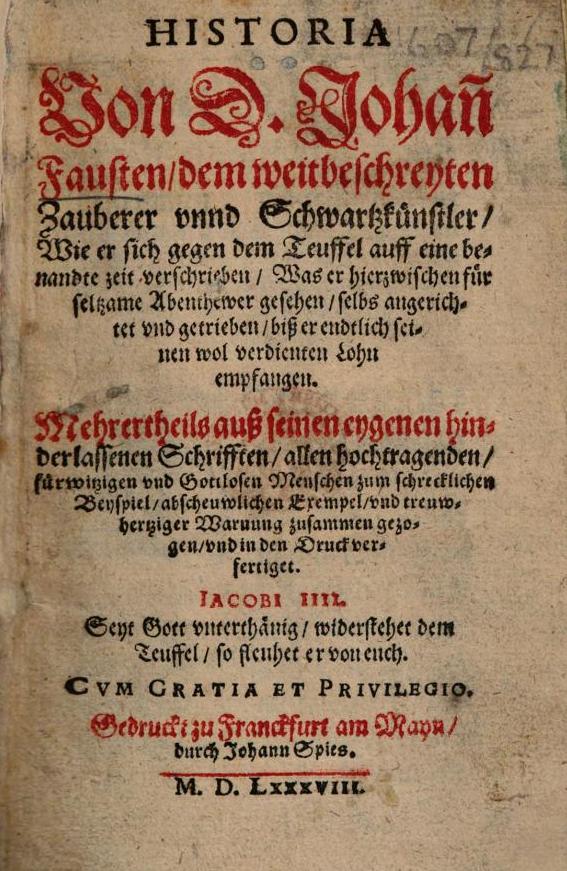 HISTORIA
607/827
Von D. Johañ
Fausten/dem weitbeschreyten
Zauberer vnnd Schwartzkünstler/
Wie er sich gegen dem Teuffel auff eine be-
nandte zeit verschrieben / Was er hierzwischen für
seltzame Abenthewer gesehen / selbs angerich-
tet vnd getrieben / biß er endtlich sei-
nen wol verdienten Lohn
empfangen.
Mehrertheils auß seinen eygenen hin-
derlassenen Schrifften/ allen hochtragenden/
fürwitzigen vnd Gottlosen Menschen zum schrecklichen
Beyspiel/ abscheuwlichen Exempel/ vnd treuw-
hertziger Warnung zusammen gezo-
gen/ vnd in den Druck ver-
fertiget.
IACOBI IIII.
Seyt Gott vnterthänig / widerstehet dem
Teuffel / so fleuhet er von euch.
CVM GRATIA ET PRIVILEGIO.
Gedruckt zu Franckfurt am Mayn/
durch Johann Spies.
M. D. LXXXVIII.